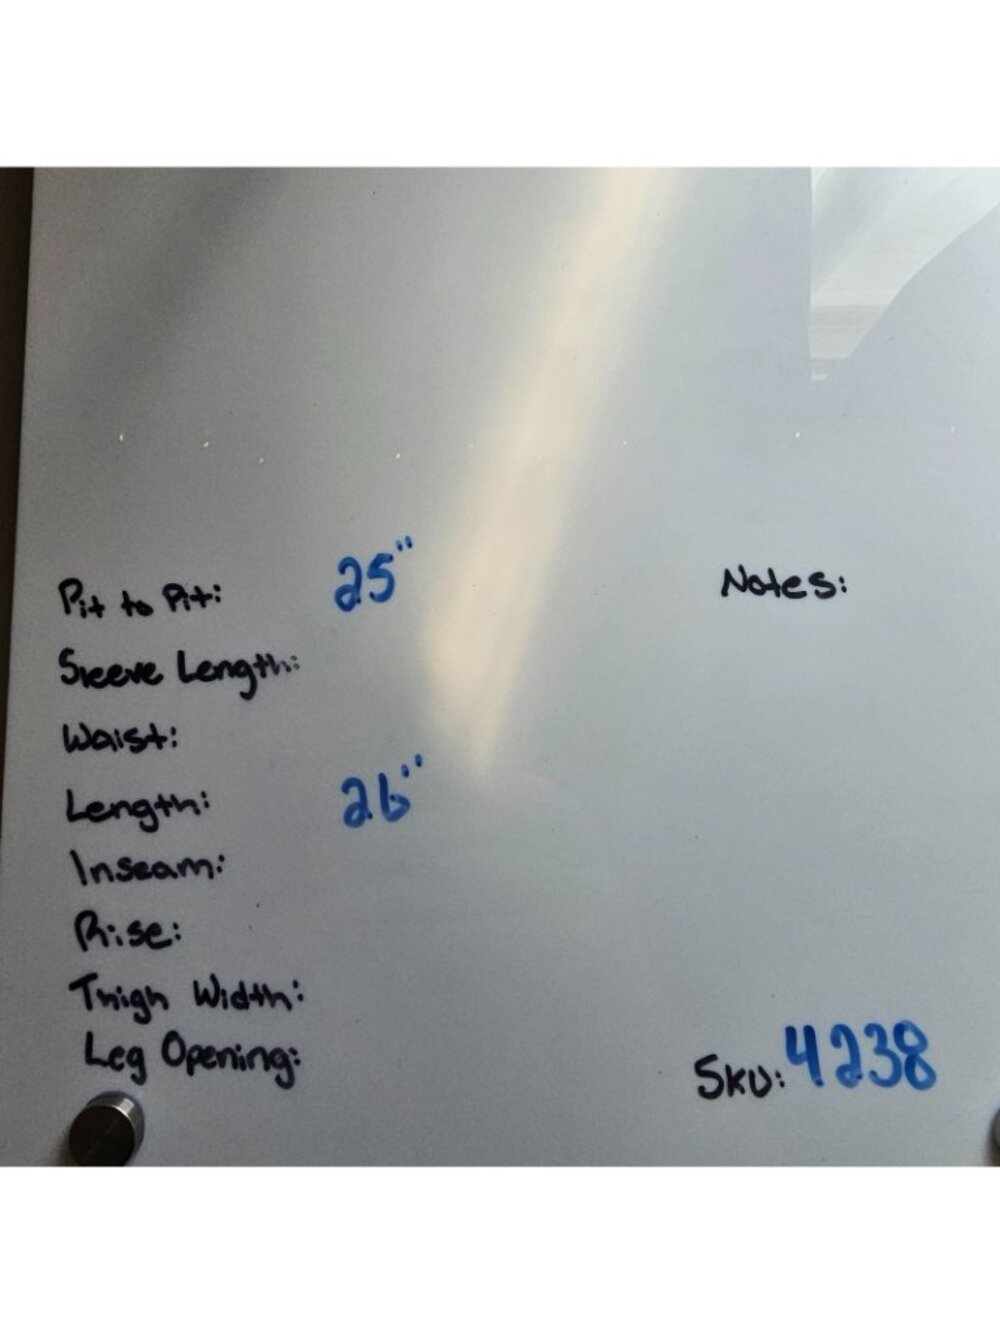 Pit to Pit: 25"
Notes:
Sleeve Length:
Waist:
Length: 26"
Inseam:
Rise:
Thigh Width:
Leg Opening:
SKU: 4238